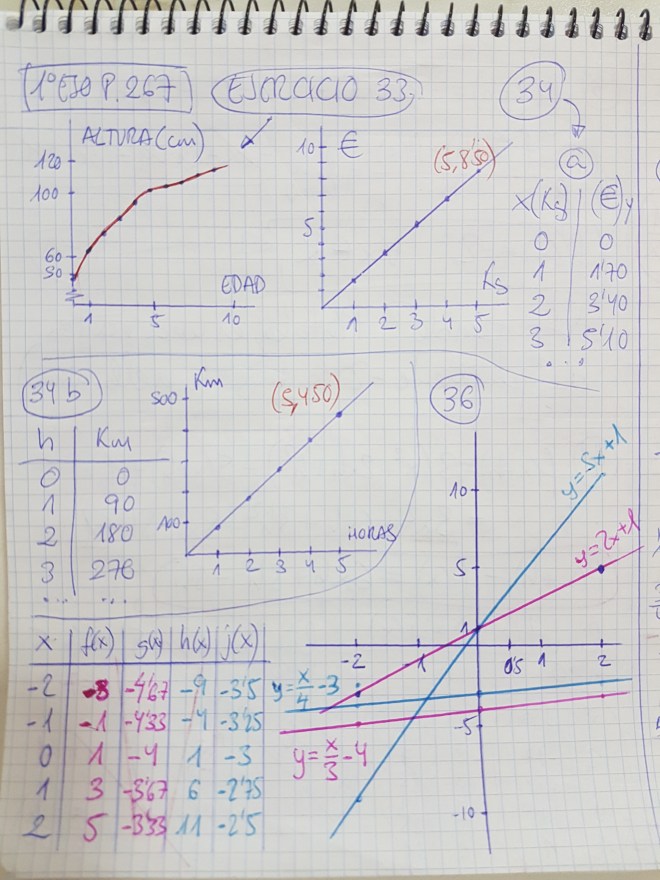 1º ESO P. 267
EJERCICIO 33
34
ALTURA (cm)
120
100
60
50
EDAD
1 5 10
10 €
(5,8'50)
5
Kg
1 2 3 4 5
a
x (Kg) (€) y
0 0
1 1'70
2 3'40
3 5'10
...
34 b
h Km
0 0
1 90
2 180
3 270
... ...
Km
500
(5,450)
100
HORAS
1 2 3 4 5
36
y=5x+1
10
y=2x+1
5
1
-2 -1 0'5 1 2
y=x/4-3
-5
y=x/3-4
-10
x f(x) g(x) h(x) j(x)
-2 -8 -4'67 -9 -3'5
-1 -1 -4'33 -4 -3'25
0 1 -4 1 -3
1 3 -3'67 6 -2'75
2 5 -3'33 11 -2'5